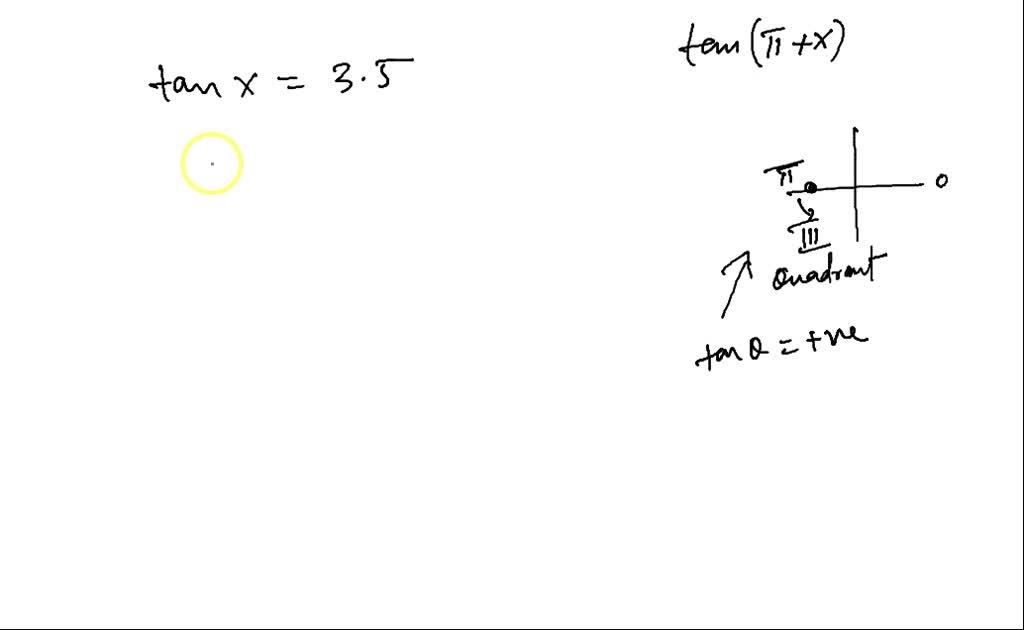 tan x = 3.5
tan(π+x)
π
0
III
Quadrant
tan θ = +ve